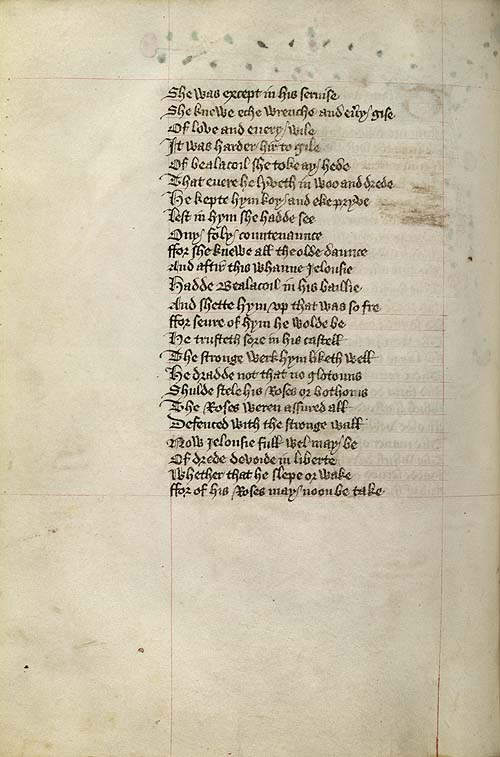 She was except in his seruise
She knewe eche wrenche and eu'y gise
Of love and euery wile
It was harder hir to gile
Of bealacoil she toke ay hede
That euere he lyveth in woo and drede
He kepte hym koy and eke pryve
Lest in hym she hadde see
Ony foly countenaunce
ffor she knewe all the olde daunce
And aftir this whanne Ielousie
Hadde Bealacoil in his baillie
And shette hym vp that was so fre
ffor seure of hym he wolde be
He trusteth sore in his castell
The stronge werk hym liketh well
He dradde not that no glotouns
Shulde stele his Roses or bothoms
The Roses weren assured all
Defenced with the stronge wall
Now Ielousie full wel may be
Of drede devoide in liberte
Whether that he slepe or wake
ffor of his Roses may noon be take